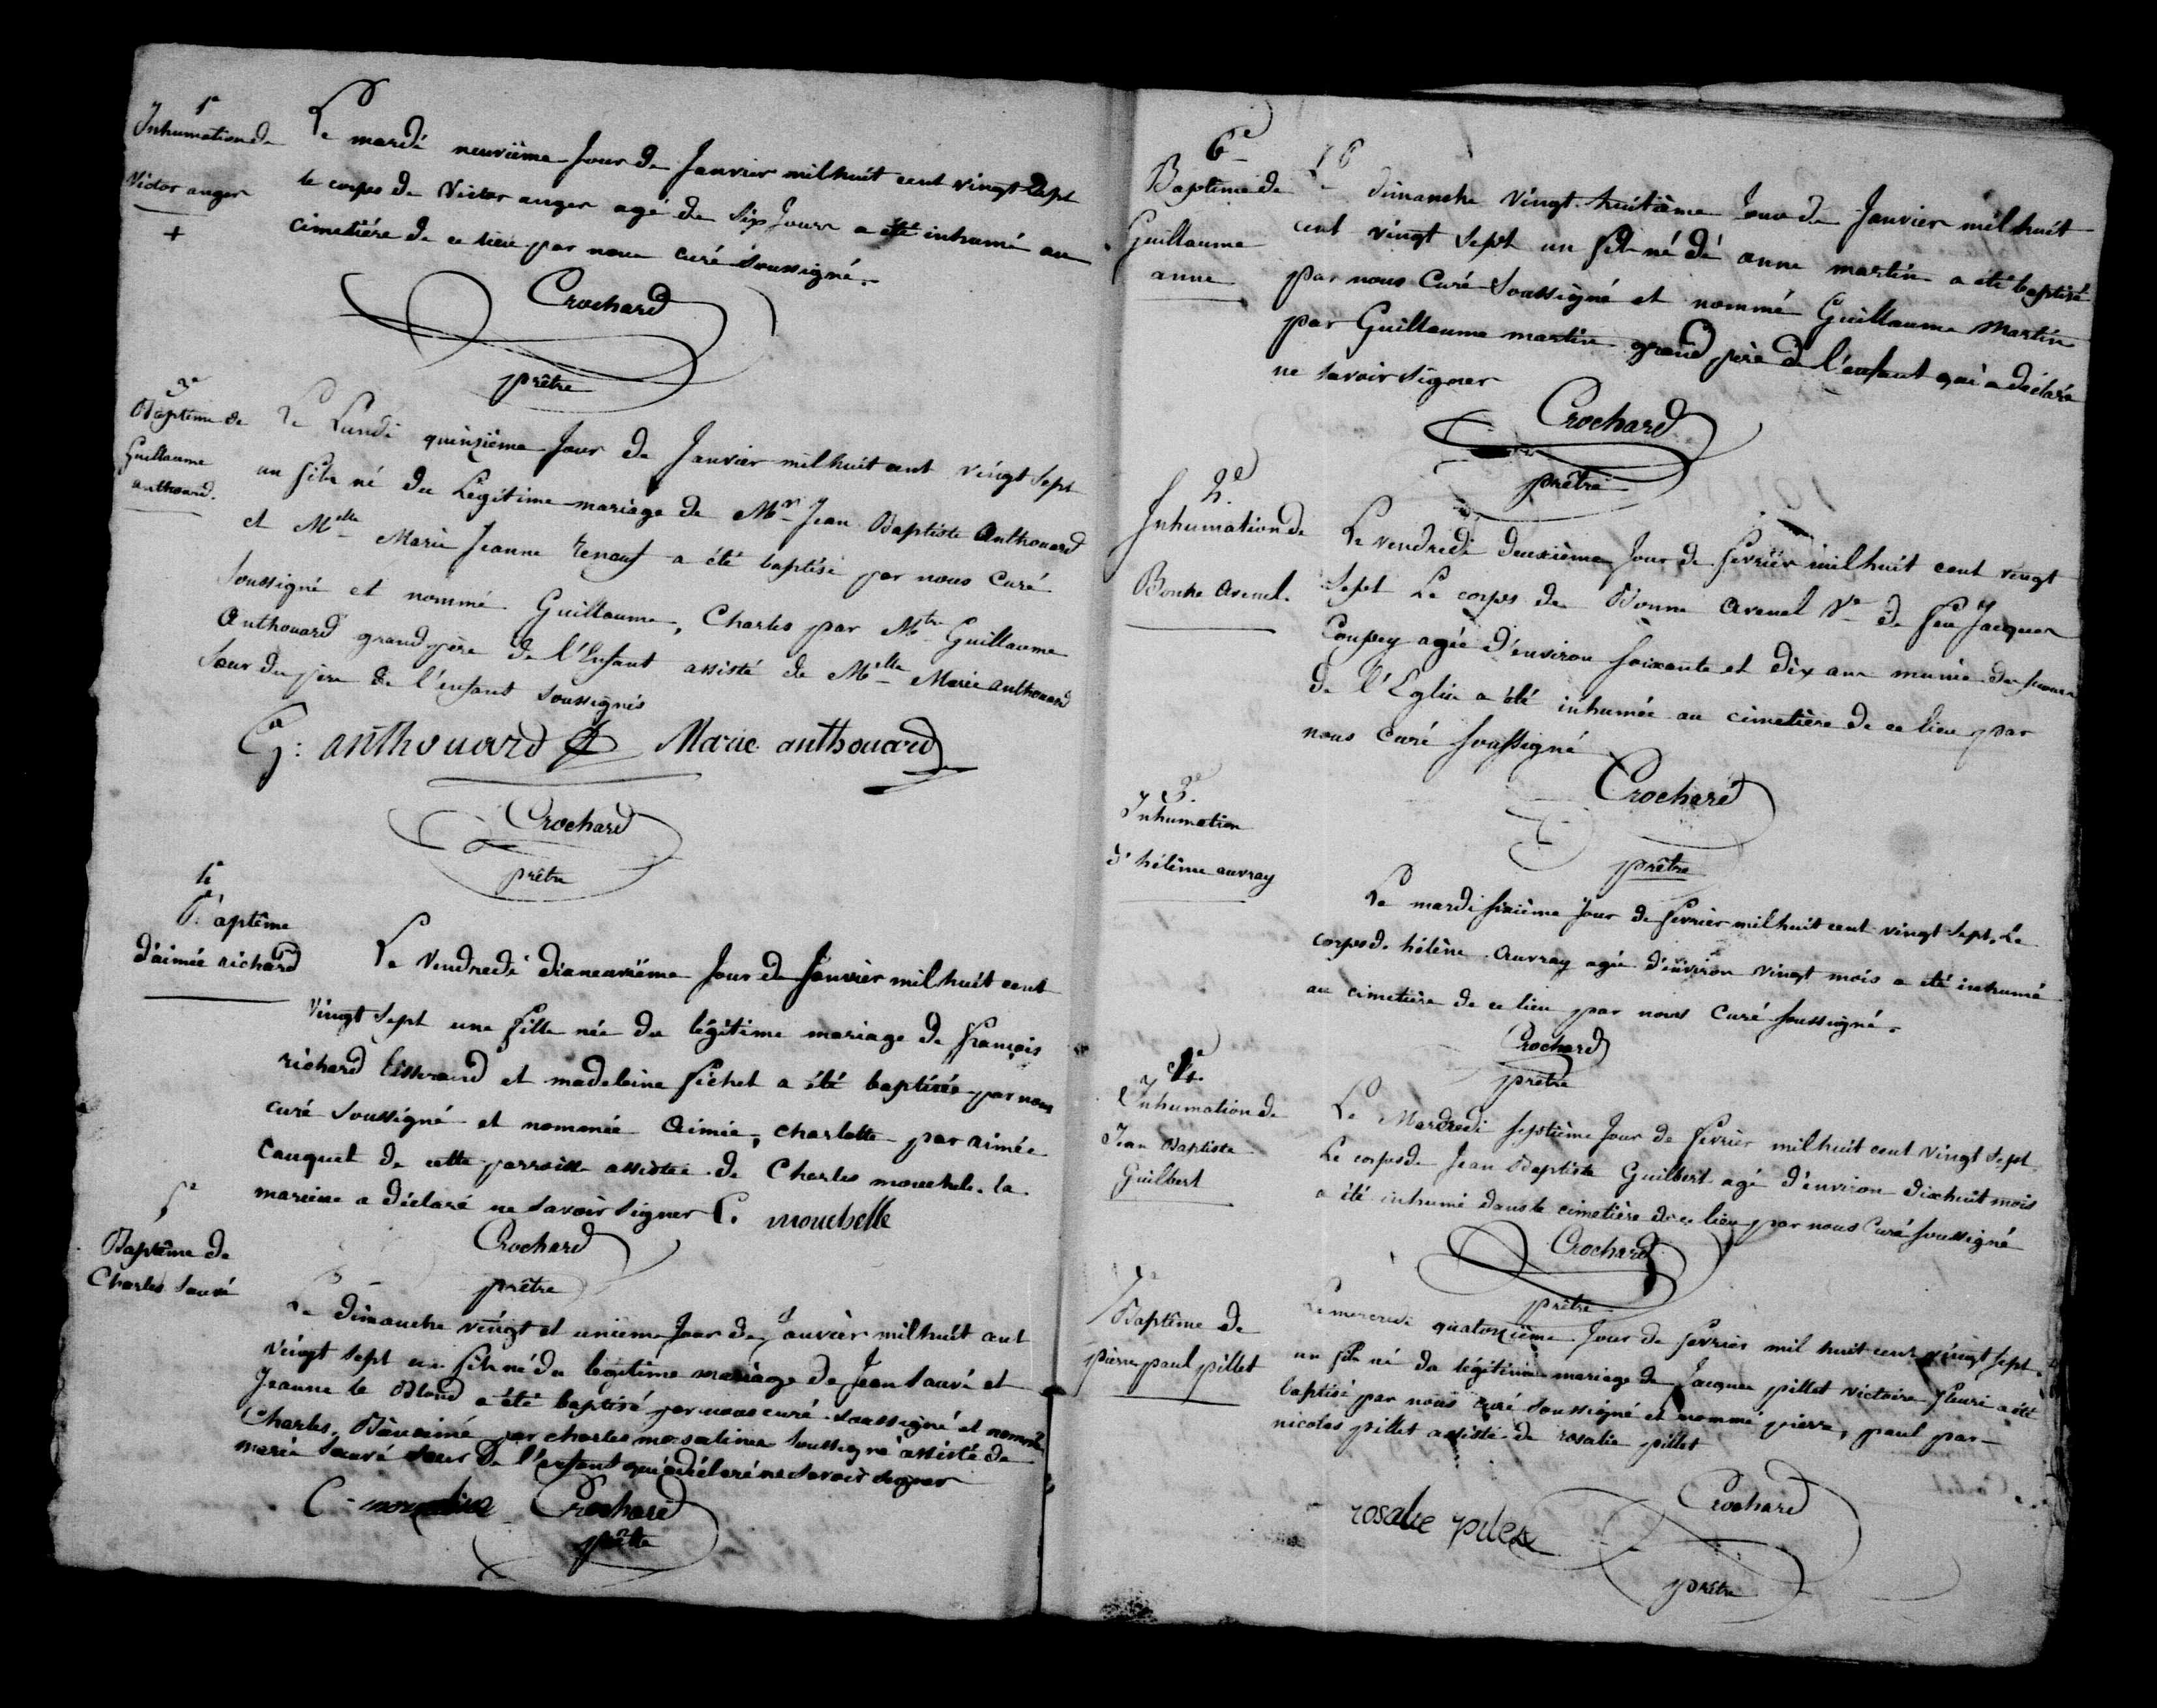 1e
Inhumation de
Victor anger
+
Le mardi neuvième jour de Janvier mil huit cent vingt Sept
le corps de Victor anger agé de Six Jours a été inhumé au
cimetière de ce lieu par nous curé Soussigné.
Crochard
prêtre
3e
Baptême de
Guillaume
anthouard.
Le Lundi quinzième Jour de Janvier mil huit cent vingt Sept
un fils né du Légitime mariage de Mr Jean Baptiste Anthouard
et Melle Marie Jeanne Renouf a été baptisé par nous Curé
Soussigné et nommé Guillaume, Charles par Mtre Guillaume
Anthouard grand père de l'Enfant assisté de Melle Marie anthouard
Sœur du père de l'enfant soussignés
G: anthouard Marie anthouard
Crochard
prêtre
4e
Baptême
d'aimée richard
Le Vendredi dixneuvième Jour de Janvier mil huit cent
Vingt Sept une fille née du légitime mariage de françois
richard et madeleine fichet a été baptisée par nous
curé Soussigné et nommée Aimée, charlotte par aimée
Cauquet de cette parroisse assistée de Charles mouchele. la
mareine a déclaré ne Savoir Signer C. mouchelle
Crochard
prêtre
5e
Baptême de
Charles Sauvé
Le dimanche vingt et unième Jour de Janvier mil huit cent
vingt Sept un fils né du légitime mariage de Jean Sauvé et
Jeanne le Blond a été baptisé par nous curé Soussigné et nommé
Charles, par charles Soussigné assisté de
marie Sauvé Sœur de l'enfant qui a déclaré ne Savoir Signer
C. Crochard
prêtre
6e
Baptême de
Guillaume
anne
Le dimanche Vingt huitième Jour de Janvier mil huit
cent vingt Sept un fils né dé anne martin a été baptisé
par nous Curé Soussigné et nommé Guillaume Martin
par Guillaume martin grand père de l'enfant qui a déclaré
ne Savoir Signer
Crochard
prêtre
2e
Inhumation de
Bonne Avenel.
Le vendredi deuxième Jour de fevrier mil huit cent vingt
Sept Le corps de Bonne Avenel Ve de feu Jacques
Coupey agée d'environ Soixante et dix ans munie des secours
de l'Eglise a été inhumée au cimetière de ce lieu par
nous Curé Soussigné
Crochard
prêtre
3e
Inhumation
d'hélène auvray
Le mardi sixième Jour de fevrier mil huit cent vingt Sept, Le
corps de hélène Auvray agée d'environ vingt mois a été inhumé
au cimetière de ce lieu par nous Curé Soussigné.
Crochard
prêtre
4e
Inhumation de
Jean Baptiste
Guilbert
Le Mercredi Septième Jour de fevrier mil huit cent vingt Sept
Le corps de Jean Baptiste Guilbert agé d'environ dixhuit mois
a été inhumé dans le cimetière de ce lieu par nous Curé Soussigné
Crochard
prêtre
7e
Baptême de
pierre paul pillet
Le mercredi quatorzième Jour de fevrier mil huit cent vingt Sept
un fils né du légitime mariage de Jacques pillet victoire fleuri a été
baptisé par nous curé Soussigné et nommé pierre, paul par
nicolas pillet assisté de rosalie pillet
rosalie pilet
Crochard
prêtre